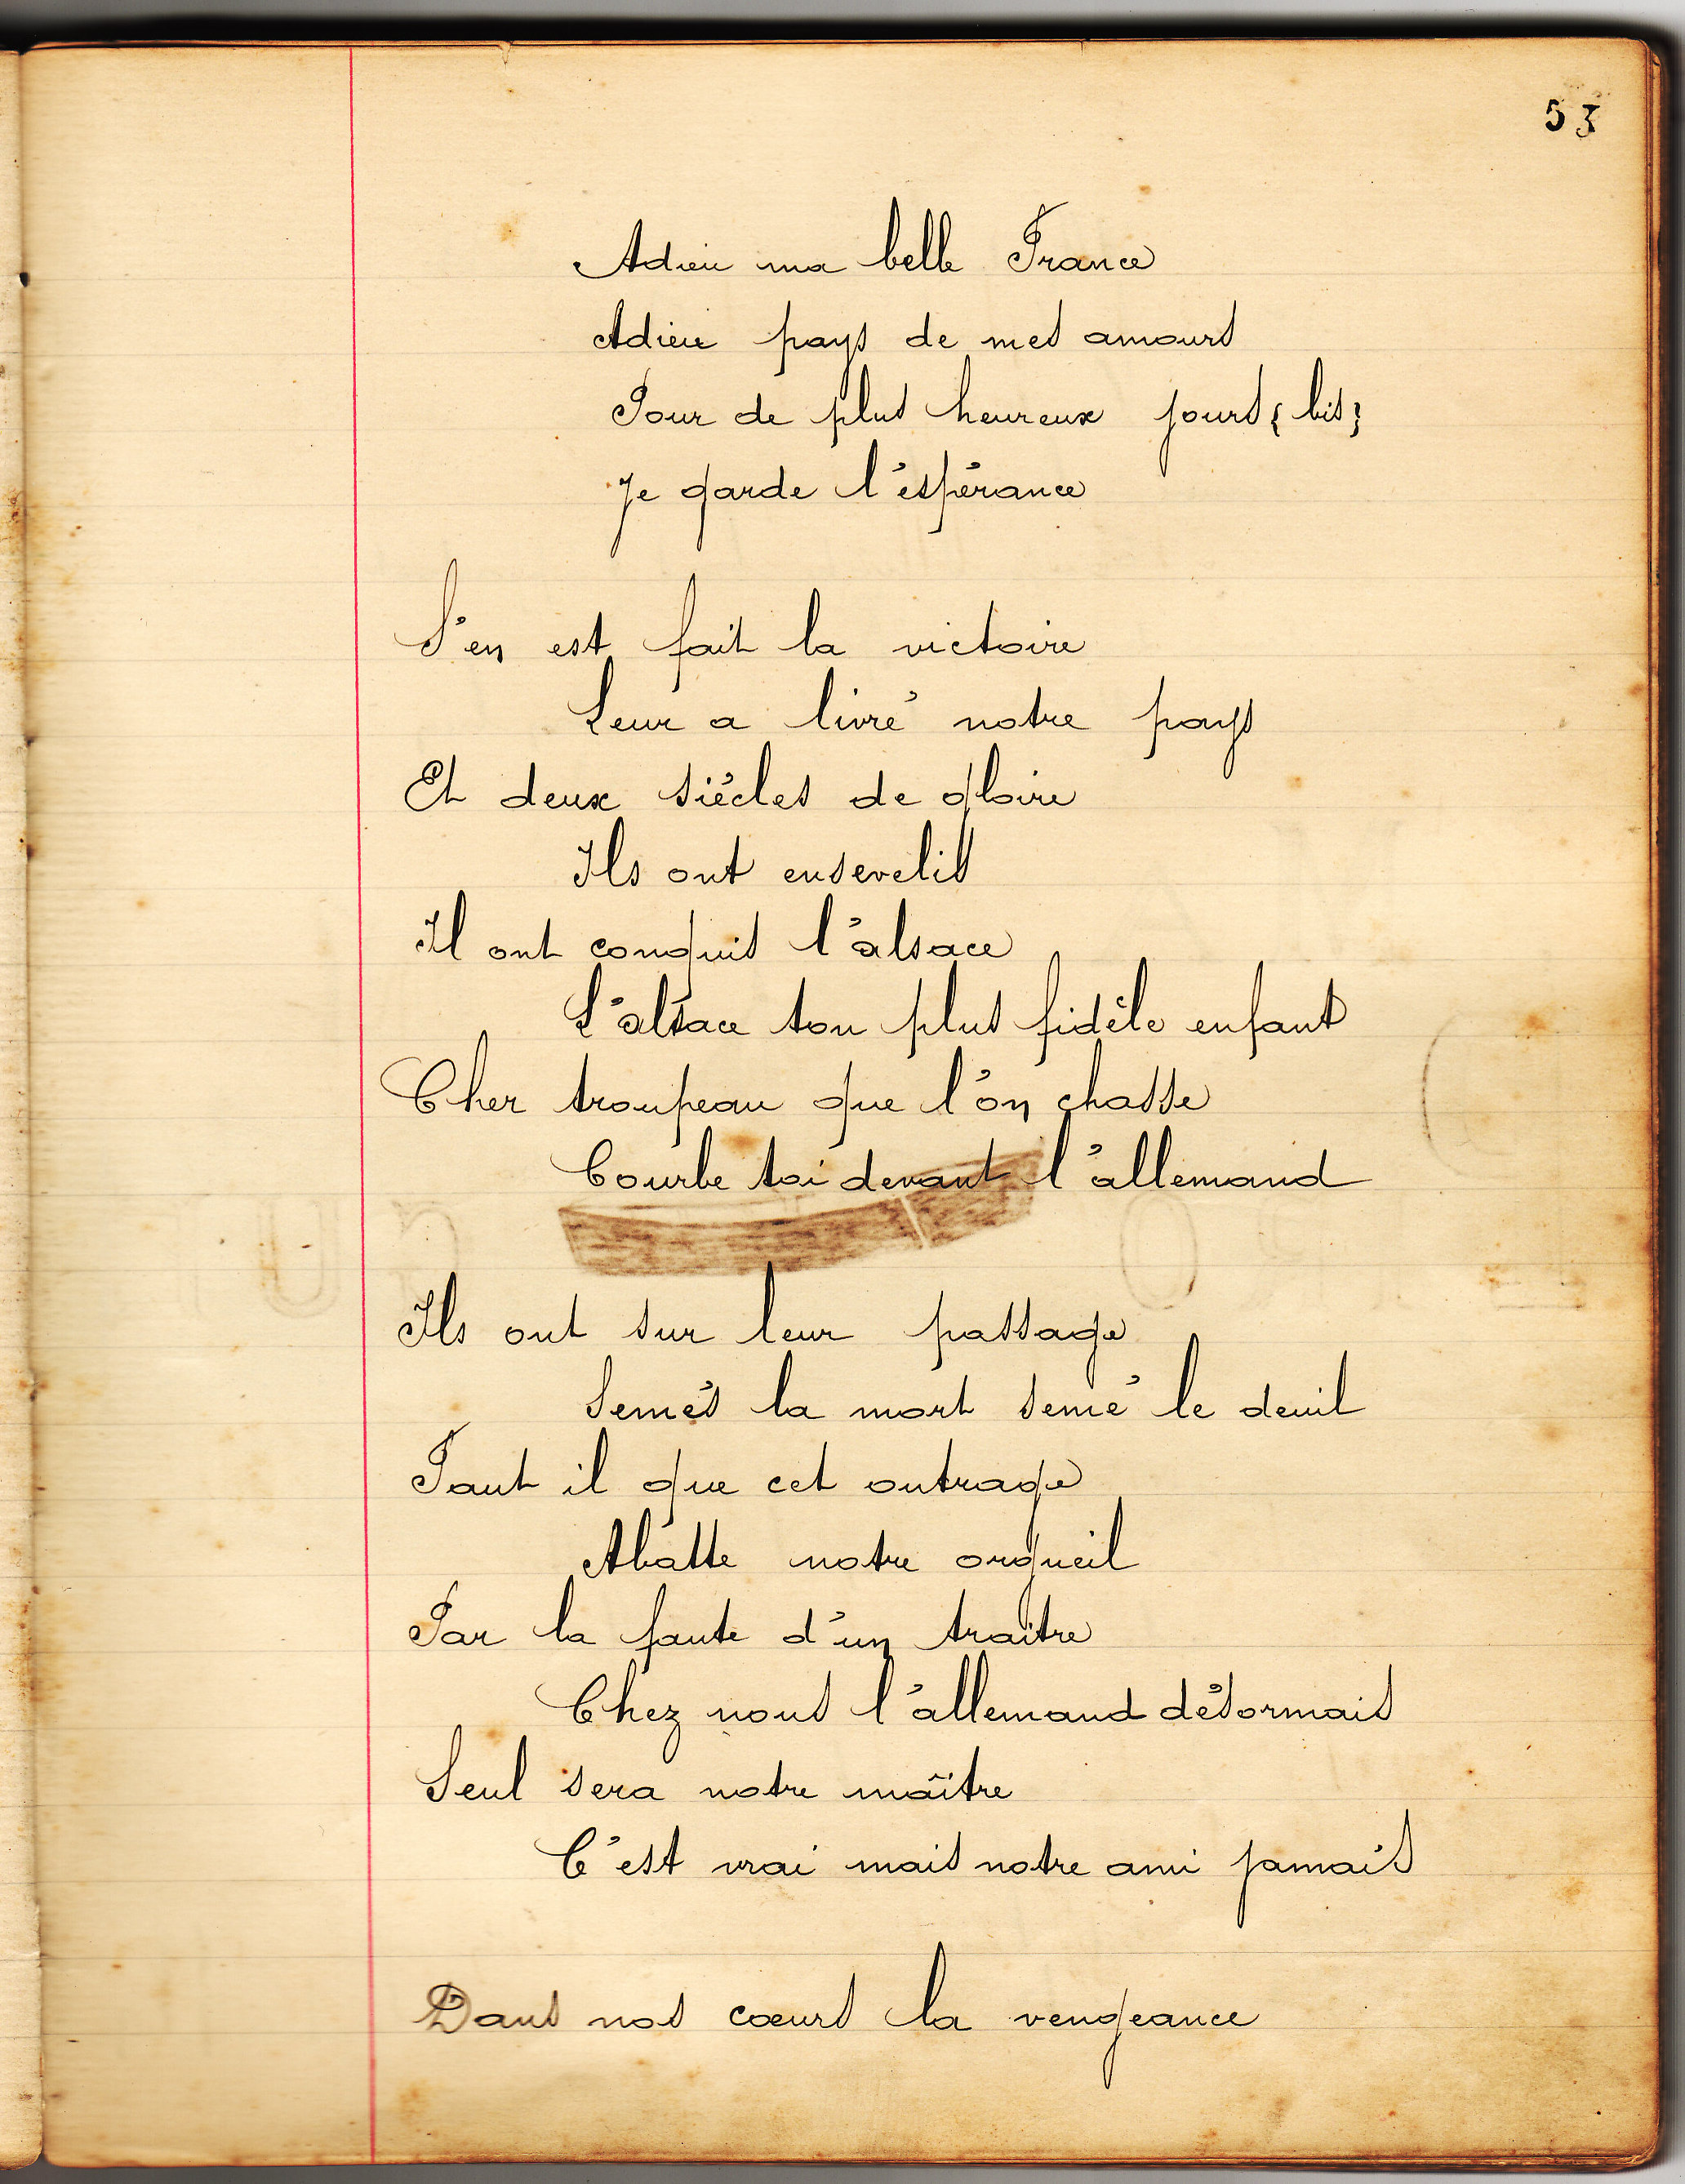 53
Adieu ma belle France
Adieu pays de mes amours
Pour de plus heureux jours { bis }
Je garde l'éspérance
S'en est fait la victoire
Leur a livré notre pays
Et deux siècles de gloire
Ils ont ensevelis
Il ont conquis l'alsace
L'alsace ton plus fidèle enfant
Cher troupeau que l'on chasse
Courbe toi devant l'allemand
Ils ont sur leur passage
Semés la mort semé le deuil
Faut il que cet outrage
Abatte notre orgueil
Par la faute d'un traître
Chez nous l'allemand désormais
Seul sera notre maître
C'est vrai mais notre ami jamais
Dans nos cœurs la vengeance